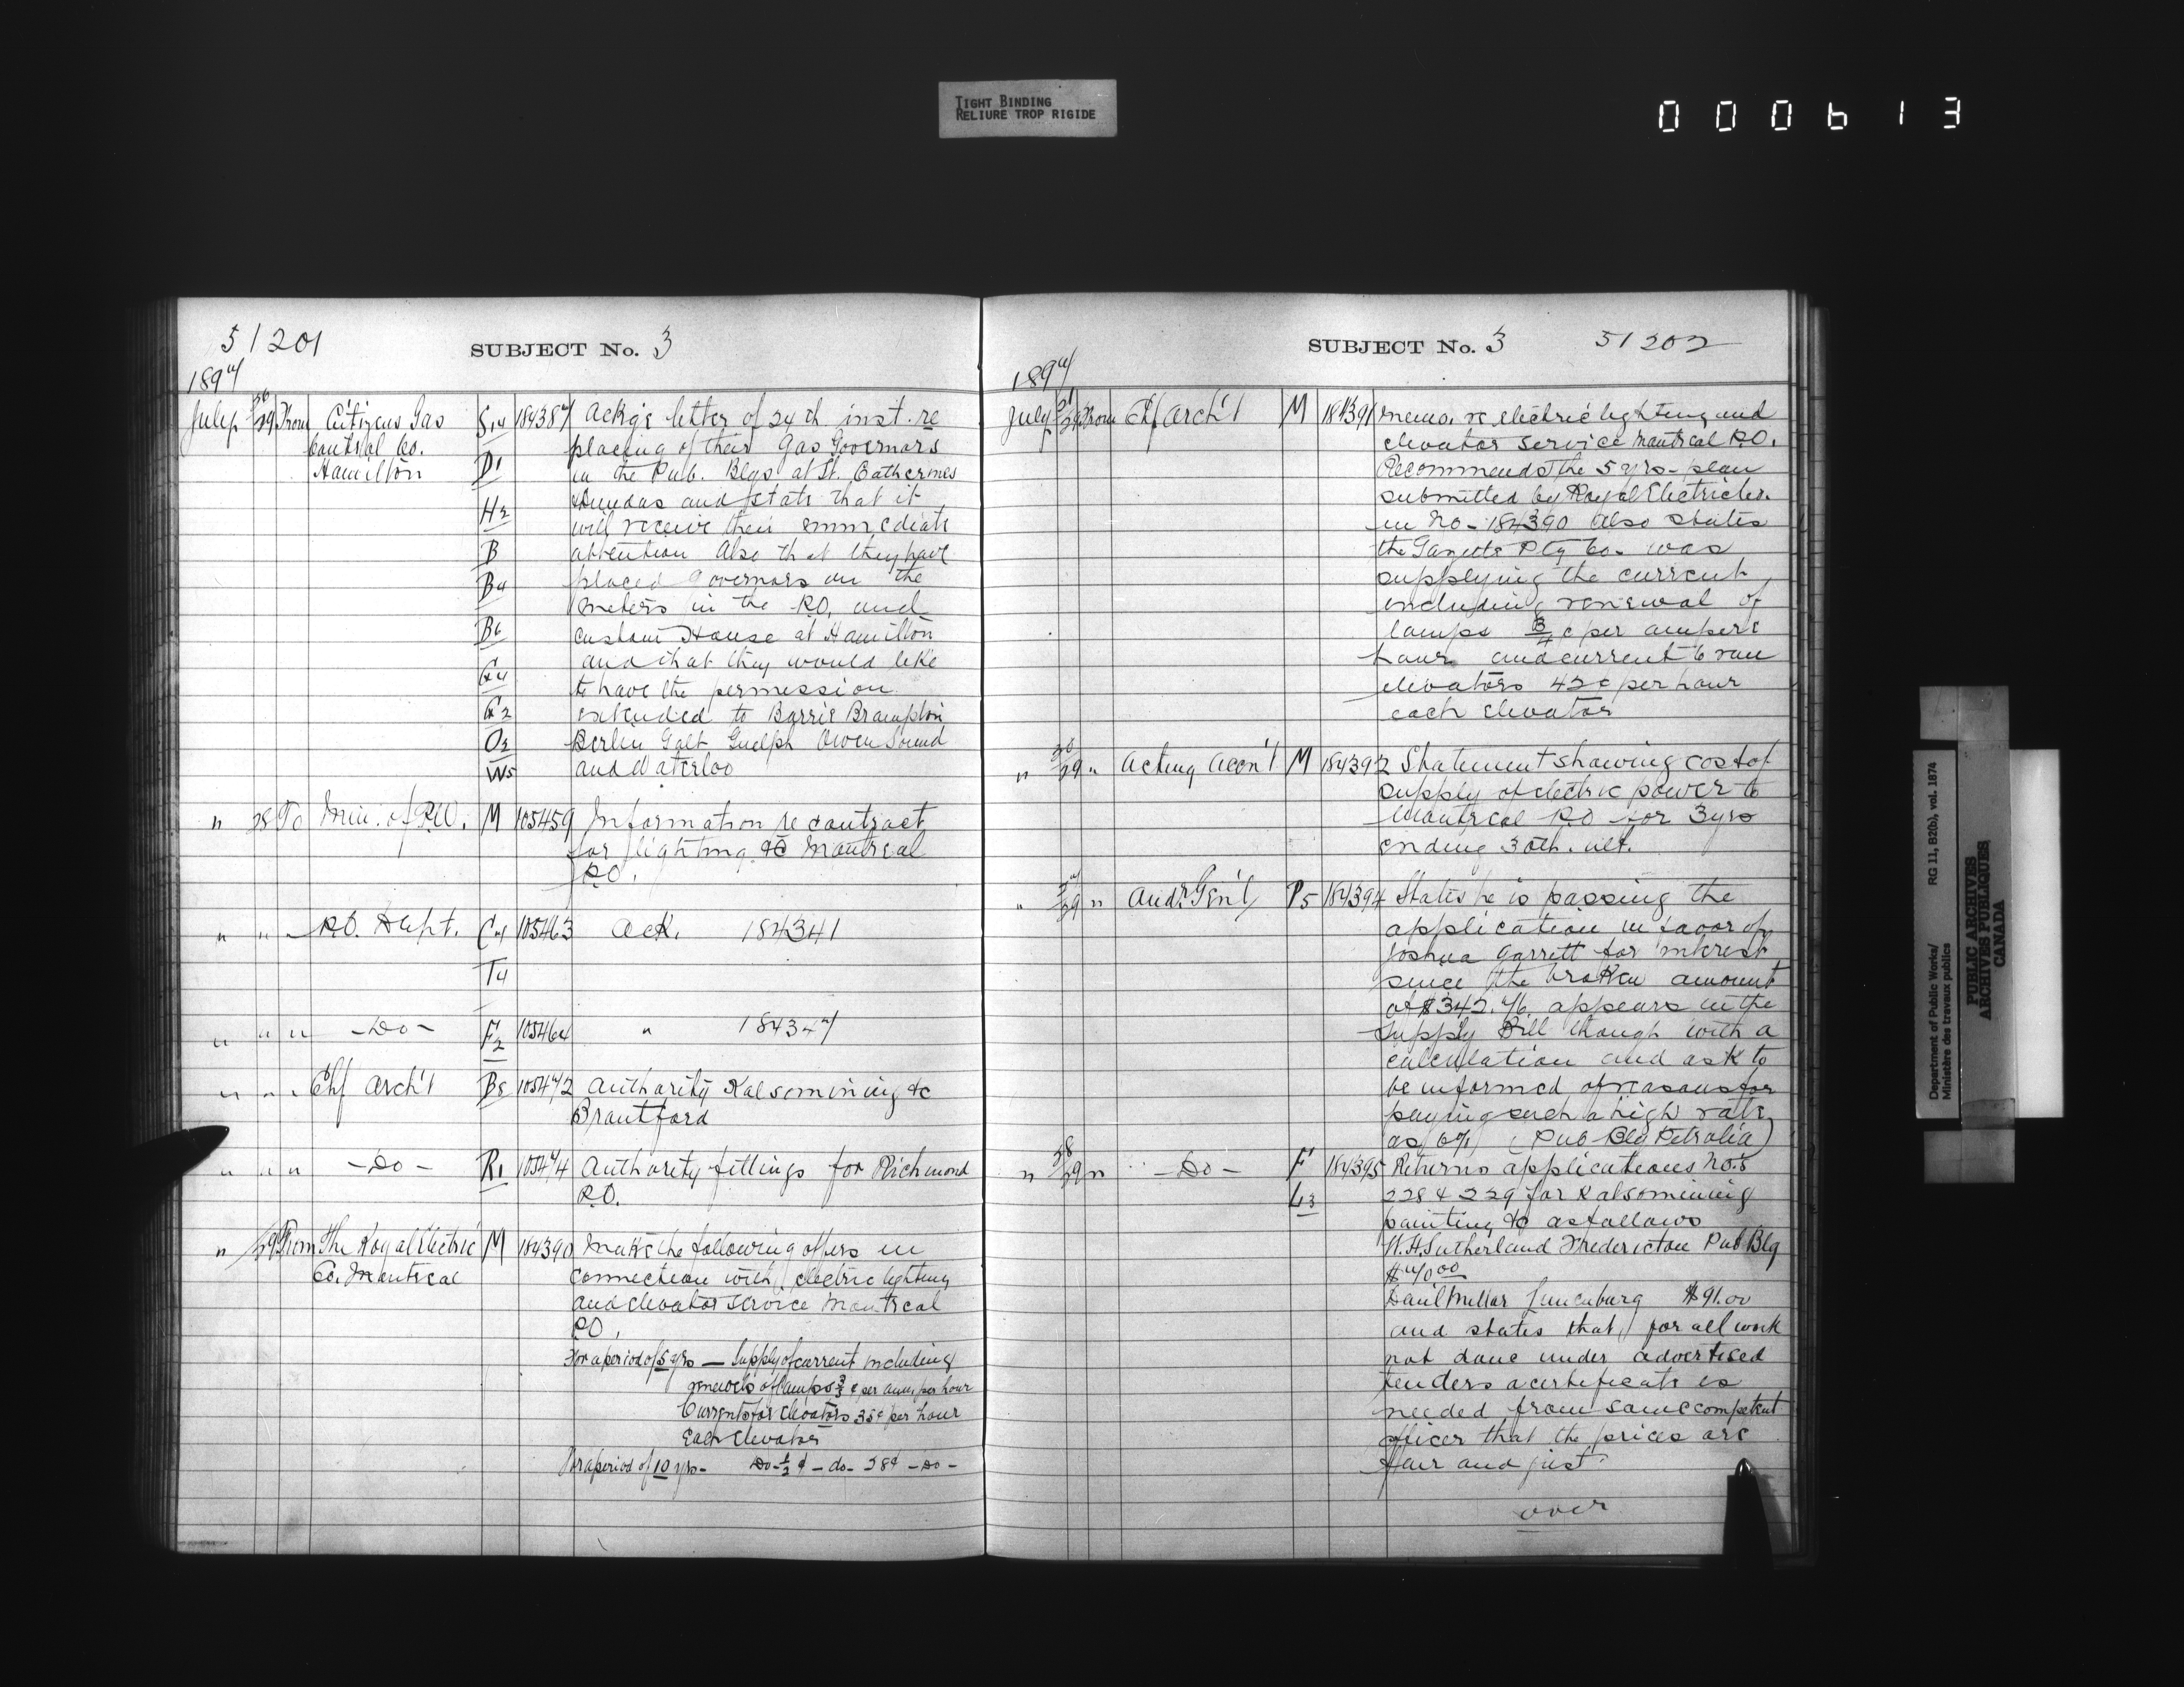 TIGHT BINDING
RELIURE TROP RIGIDE
000613
51201
SUBJECT No. 3
1897
July 26/29 From Citizens Gas Control Co. Hamilton S14 184387 Ackg's letter of 24th inst. re
placing of their Gas Governors
D1 in the Pub. Blgs at St. Catherines
H2 Dundas and state that it
will receive their immediate
B attention Also that they have
B4 placed Governors on the
meters in the P.O. and
B6 Custom House at Hamilton
and that they would like
G4 to have the permission
G2 extended to Barrie Brampton
O2 Berlin Galt Guelph Owen Sound
W5 and Waterloo
" 28 To Min. of P.W. M 105459 Information re contract
for lighting &c Montreal
P.O.
" " " P.O. Dept. 105463 Ack. 184341
T4
" " " -Do- F2 105464 " 184347
" " " Chf Arch't B8 105472 Authority Kalsomining &c
Brantford
" " " -Do- R1 105474 Authority fittings for Richmond
P.O.
" 29 From The Royal Electric Co. Montreal M 184390 Make the following offers in
connection with electric lighting
and elevator service Montreal
P.O.
For a period of 5 yrs — Supply of current including
renewels of lamps per amp. per hour
Currents for elevators 35¢ per hour
Each elevator
For a period of 10 yrs - Do - ½ ¢ - do - 28¢ - Do -
SUBJECT No. 3 51202
1897
July 29 From Chf Arch't M 184391 Memo. re electric lighting and
elevator service Montreal P.O.
Recommends the 5 yrs - plan
submitted by Royal Electric Co.
in No - 184390 Also states
the Gazette Ptg Co. was
supplying the current
including renewal of
lamps ¾ c per ampere
hour and current to run
elevators 42 c per hour
each elevator
" 26/29 " Acting Acon't M 184392 Statement showing cost of
supply of electric power to
Montreal P.O for 3 yrs
ending 30th. ult.
" 29 " Aud. Gen'l P5 184394 States he is passing the
application in favor of
Joshua Garrett for interest
since the broken amount
of $342.76 appears in the
Supply Bill though with a
calculation and ask to
be informed of reasons for
paying such a high rate
as 6% (Pub Blg Petrolia)
" 28/29 " -Do- F 184395 Returns applications No.s
L3 228 & 229 for Kalsomining
painting &c as follows
W. H. Sutherland Fredericton Pub Blg
$70.00
Danl Millar Lunenburg $91.00
and states that for all work
not done under advertised
tenders a certificate is
needed from some competent
officer that the prices are
fair and just.
over
Department of Public Works/
Ministère des travaux publics
RG 11, B2(b), vol. 1874
PUBLIC ARCHIVES
ARCHIVES PUBLIQUES
CANADA